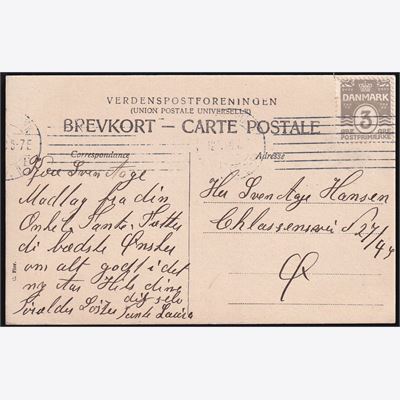 VERDENSPOSTFORENINGEN
(UNION POSTALE UNIVERSELLE)
BREVKORT — CARTE POSTALE
DANMARK
3
ØRE ØRE
POSTFRIMÆRKE
Correspondance
Adresse
Kjære Sven Aage
Modtag fra din
Onkel, Tante,
di bedste Ønsker
om alt godt i det
ny Aar Hils dine
Foreldre Søster dig selv
Tante Laura
Hr Sven Aage Hansen
Chlassensvei 27/4